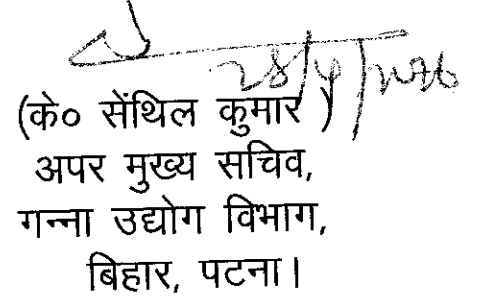 (के० सेंथिल कुमार )
अपर मुख्य सचिव,
गन्ना उद्योग विभाग,
बिहार, पटना।